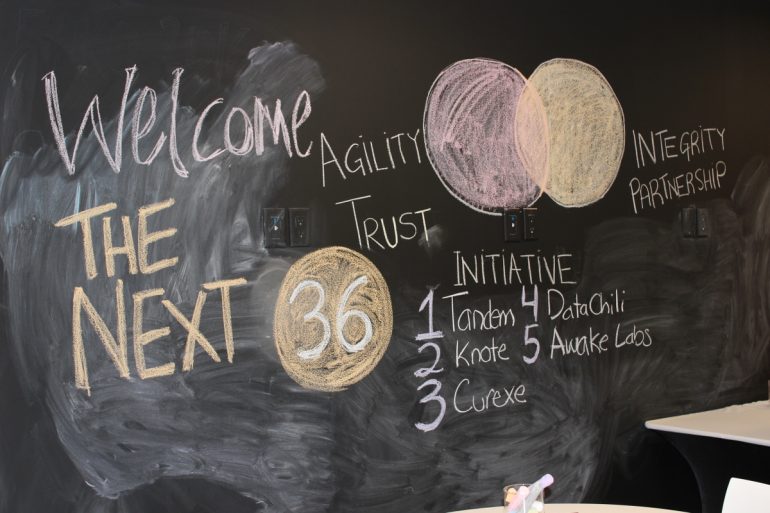 Welcome
THE
NEXT
36
AGILITY
TRUST
INTEGRITY
PARTNERSHIP
INITIATIVE
1 Tandem
2 Knote
3 Curexe
4 DataChili
5 Awake Labs